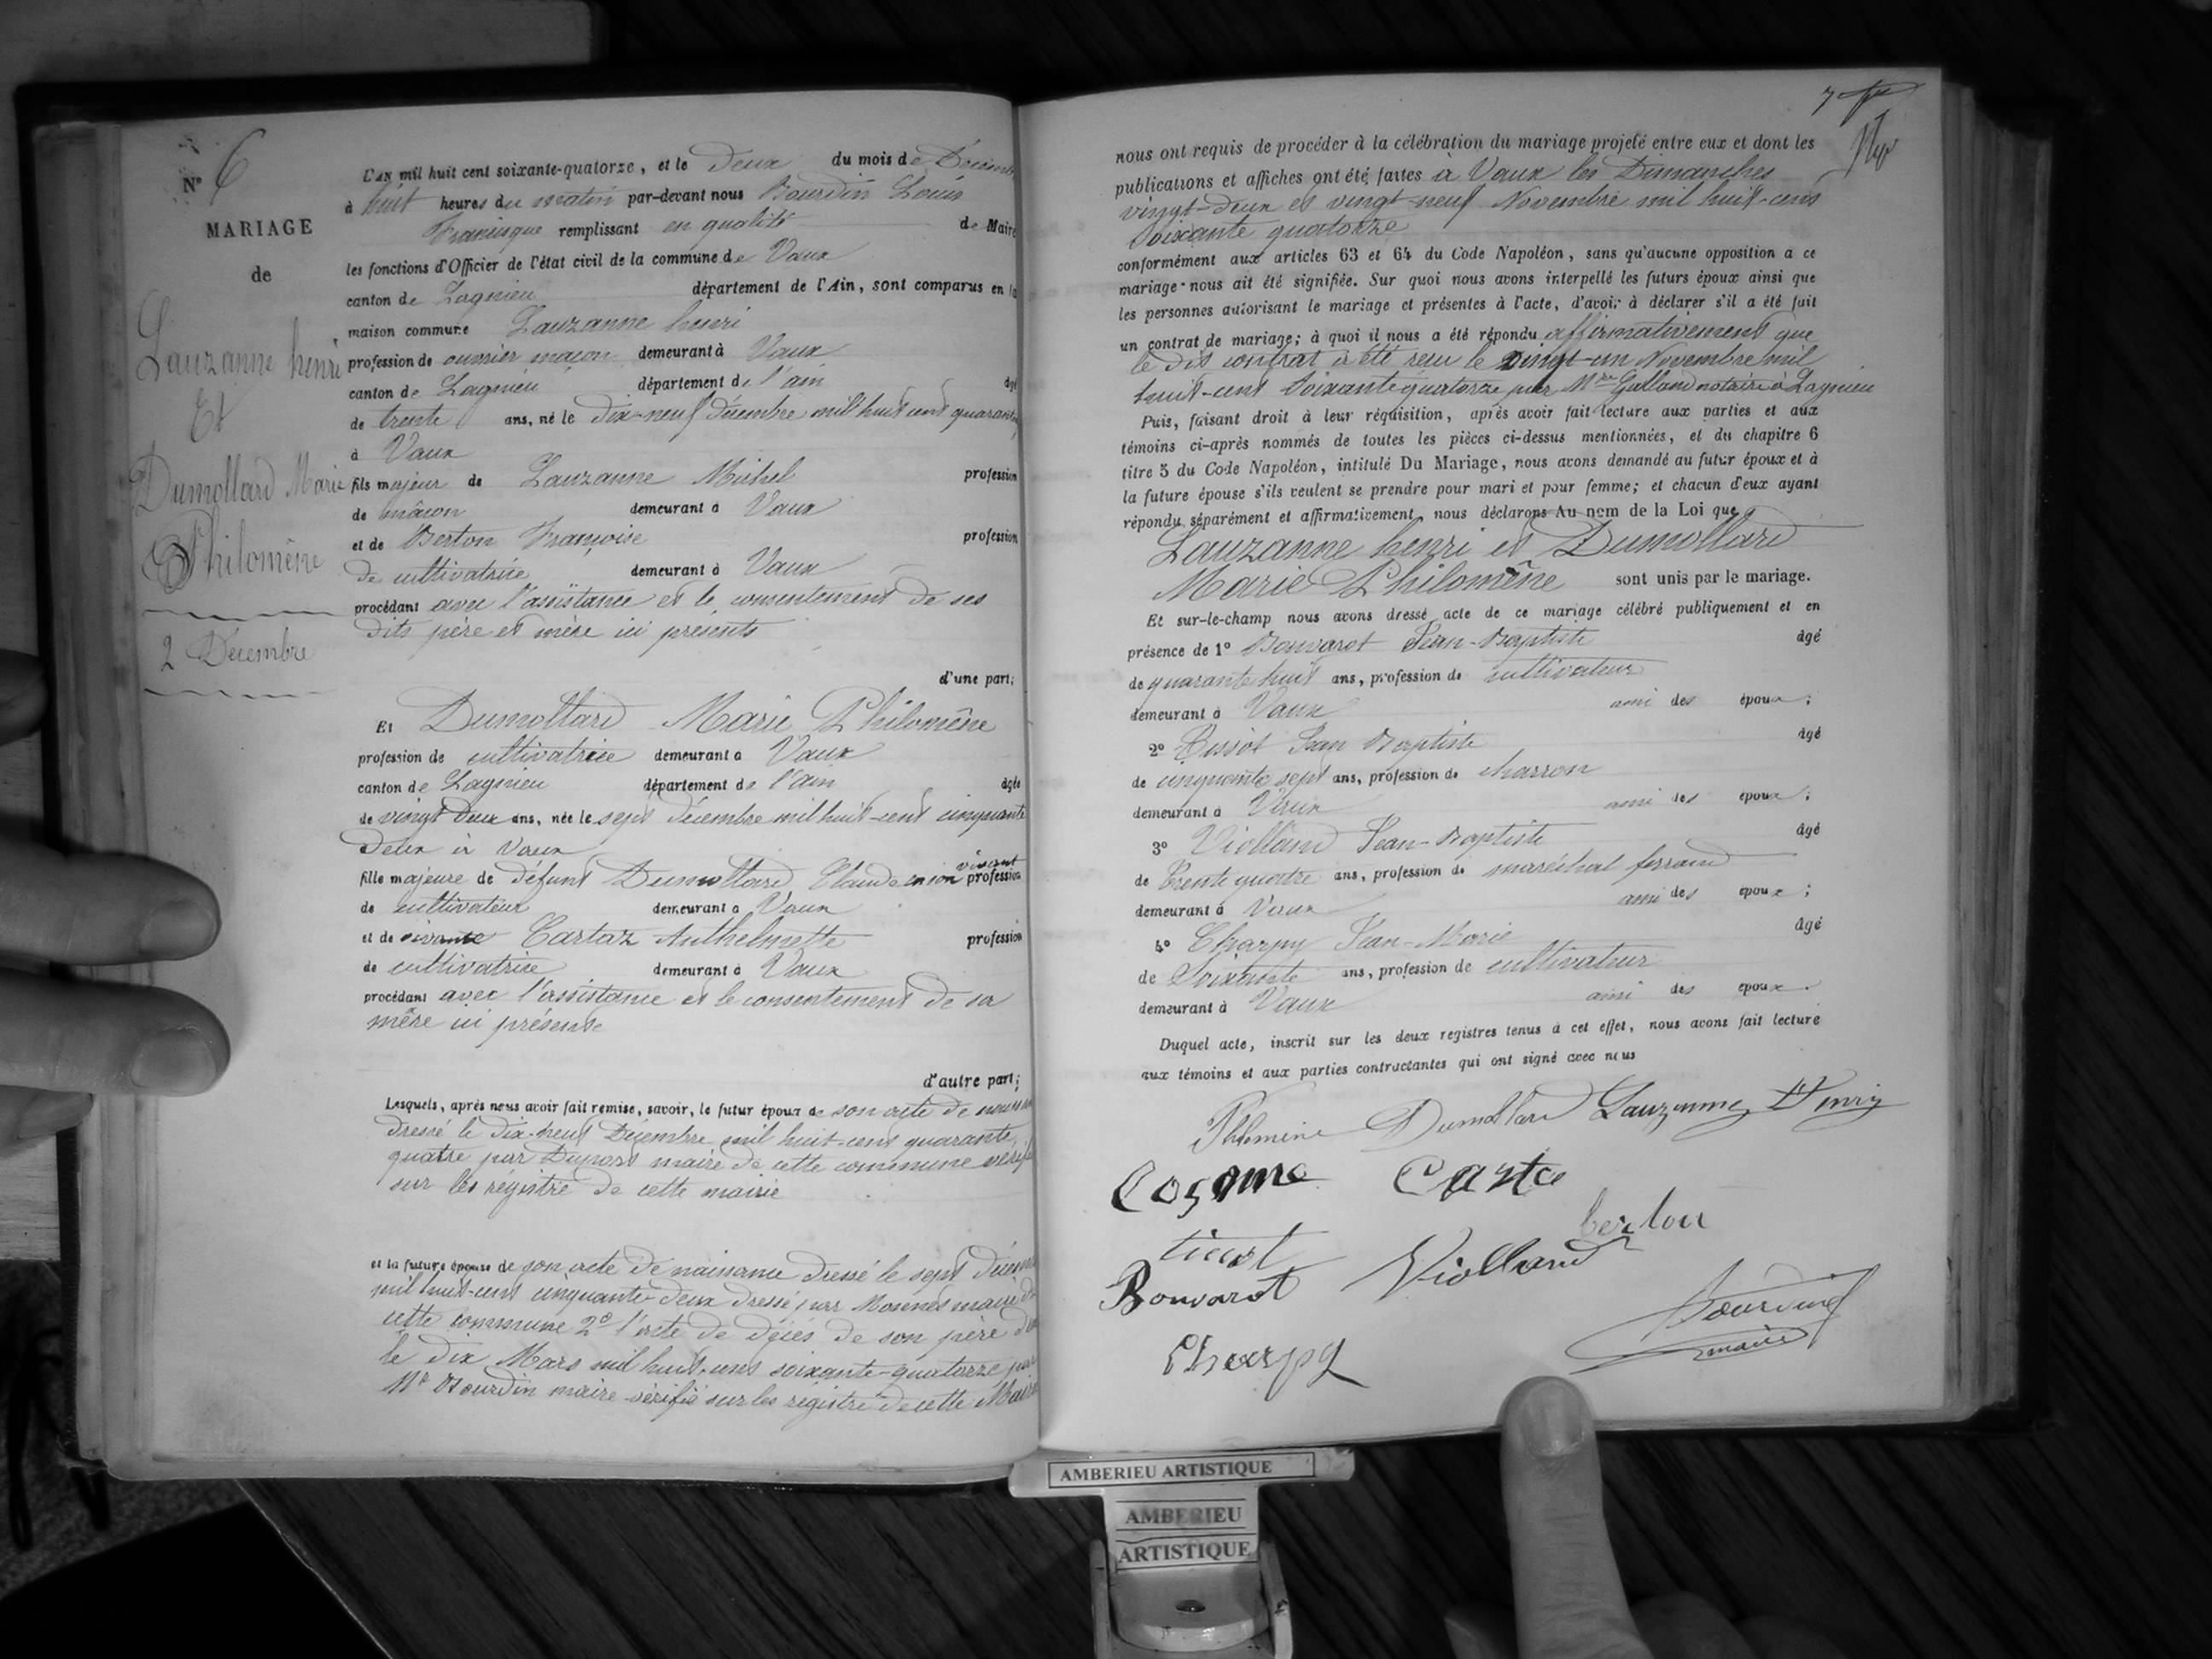 N° 6
MARIAGE
de
Lauzanne henri
Et
Dumollard Marie
Philomène
2 Décembre
L'AN mil huit cent soixante-quatorze, et le Deux du mois de Décemb
à huit heures du matin par-devant nous Bourdin Louis
Francisque remplissant en qualité de Maire
les fonctions d'Officier de l'état civil de la commune de Vaux
canton de Lagnieu département de l'Ain, sont comparus en la
maison commune Lauzanne henri
profession de ouvrier maçon demeurant à Vaux
canton de Lagnieu département de l'ain âgé
de trente ans, né le dix-neuf décembre mil huit cent quarante
à Vaux
fils majeur de Lauzanne Michel profession
de mâcon demeurant à Vaux
et de Berton Françoise profession
de cultivatrice demeurant à Vaux
procédant avec l'assistance et le consentement de ses
dits père et mère ici présents
d'une part;
Et Dumollard Marie Philomène
profession de cultivatrice demeurant à Vaux
canton de Lagnieu département de l'ain âgée
de vingt deux ans, née le sept décembre mil huit-cent cinquante
deux à Vaux
fille majeure de défunt Dumollard Claude en son vivant profession
de cultivateur demeurant à Vaux
et de vivante Cartaz Anthelmette profession
de cultivatrice demeurant à Vaux
procédant avec l'assistance et le consentement de sa
mère ici présente
d'autre part;
Lesquels, après nous avoir fait remise, savoir, le futur époux de son acte de naissan
dressé le dix-neuf Décembre mil huit-cent quarante
quatre par Duport maire de cette commune vérifi
sur les régistre de cette mairie
et la future épouse de son acte de naissance dressé le sept décem
mil huit-cent cinquante-deux dressé par Monnet maire de
cette commune 2° l'acte de décès de son père du
le dix Mars mil huit-cent soixante-quatorze par
Mr Bourdin maire vérifié sur les régistre de cette Mairie
7
nous ont requis de procéder à la célébration du mariage projeté entre eux et dont les
publications et affiches ont été faites à Vaux les Dimanches
vingt-deux et vingt-neuf Novembre mil huit-cent
soixante quatorze
conformément aux articles 63 et 64 du Code Napoléon, sans qu'aucune opposition a ce
mariage nous ait été signifiée. Sur quoi nous avons interpellé les futurs époux ainsi que
les personnes autorisant le mariage et présentes à l'acte, d'avoir à déclarer s'il a été fait
un contrat de mariage; à quoi il nous a été répondu affirmativement que
le dit contrat a été reçu le vingt-un Novembre mil
huit-cent soixante quatorze par Mre Galland notaire à Lagnieu
Puis, faisant droit à leur réquisition, après avoir fait lecture aux parties et aux
témoins ci-après nommés de toutes les pièces ci-dessus mentionnées, et du chapitre 6
titre 5 du Code Napoléon, intitulé Du Mariage, nous avons demandé au futur époux et à
la future épouse s'ils veulent se prendre pour mari et pour femme; et chacun d'eux ayant
répondu séparément et affirmativement, nous déclarons Au nom de la Loi que
Lauzanne henri et Dumollard
Marie Philomène sont unis par le mariage.
Et sur-le-champ nous avons dressé acte de ce mariage célébré publiquement et en
présence de 1° Bouvarot Jean-Baptiste âgé
de quarante huit ans, profession de cultivateur
demeurant à Vaux ami des époux;
2° Jean Baptiste âgé
de cinquante sept ans, profession de charron
demeurant à Vaux ami des époux;
3° Violland Jean-Baptiste âgé
de trente quatre ans, profession de maréchal ferrand
demeurant à Vaux ami des époux;
4° Charpy Jean-Marie âgé
de Soixante ans, profession de cultivateur
demeurant à Vaux ami des époux.
Duquel acte, inscrit sur les deux registres tenus à cet effet, nous avons fait lecture
aux témoins et aux parties contractantes qui ont signé avec nous
Philomine Dumollard Lauzanne Henry
Losanne Carta
berton
Bouvarot Violland
Bourdin
maire
Charpy
AMBERIEU ARTISTIQUE
AMBERIEU
ARTISTIQUE